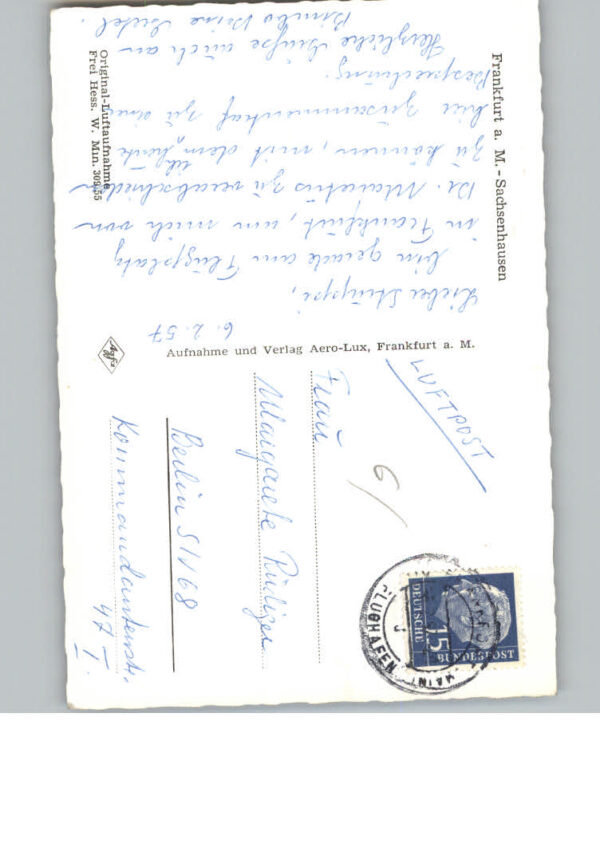 Frankfurt a. M. - Sachsenhausen
6. 2. 57
Lieber Strüppi,
bin gerade am Flugplatz
in Frankfurt, um mich von
Dr. Maretus zu verabschieden
zu können, mit dem ich heute
hier zusammentraf zu einer
Besprechung.
Herzliche Grüße auch an
Original-Luftaufnahme
Frei Hess. W. Min. 309/55
Aufnahme und Verlag Aero-Lux, Frankfurt a. M.
Agfa
LUFTPOST
Frau
Margarete Rüdiger
Berlin SW 68
Kommandantenstr.
47 I.
6/
DEUTSCHE
BUNDESPOST
15
FLUGHAFEN
MAIN